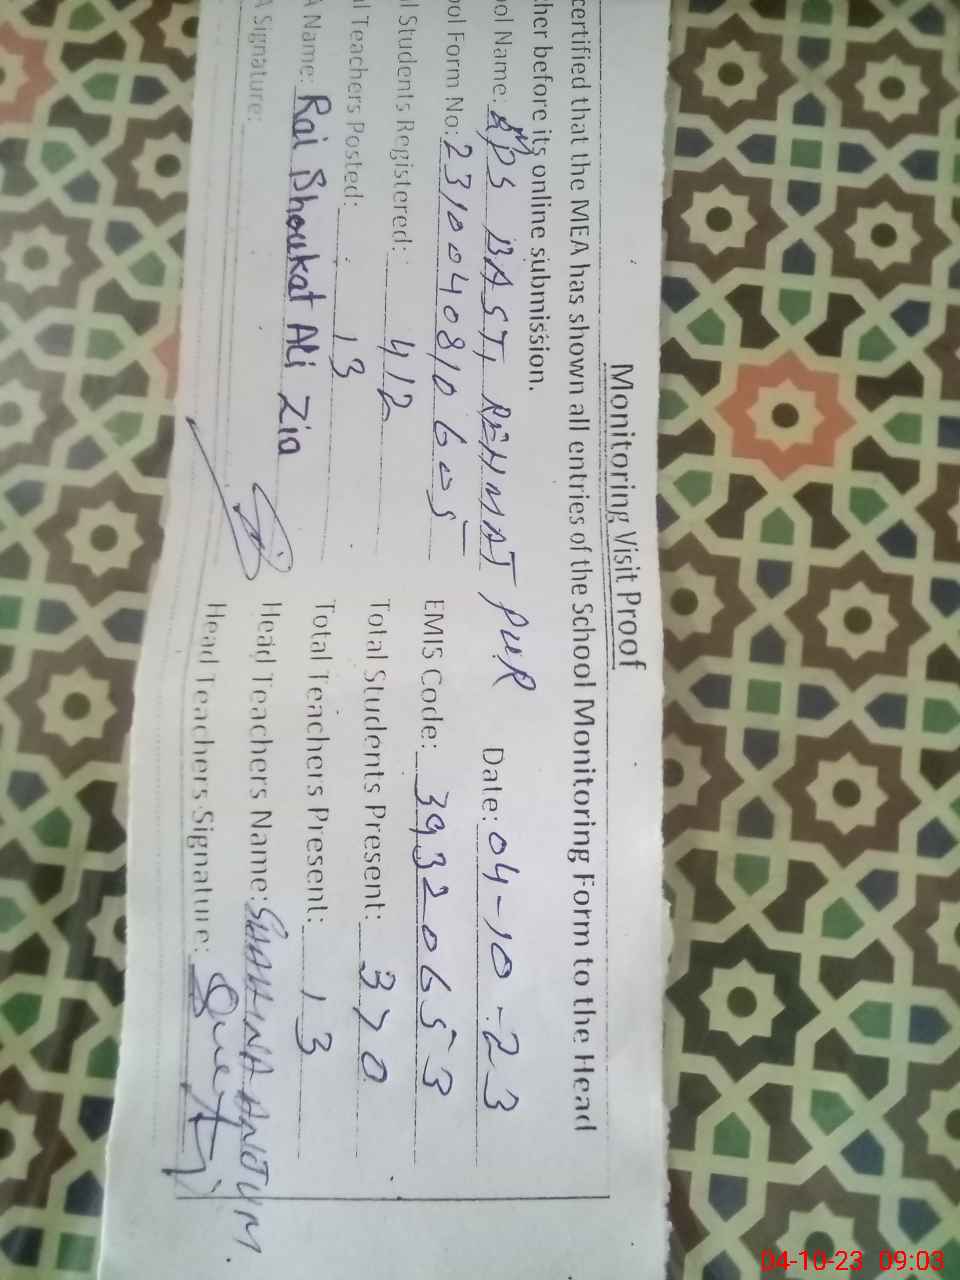 Monitoring Visit Proof
certified that the MEA has shown all entries of the School Monitoring Form to the Head
cher before its online submission.
ool Name: BAST, REHMAT PUR Date: 04-10-23
ool Form No: 23100408106005 EMIS Code: 39320653
al Students Registered: 412 Total Students Present: 370
al Teachers Posted: 13 Total Teachers Present: 13
A Name: Rai Shoukat Ali Zia Head Teachers Name: SHAHINA ANJUM.
A Signature: Head Teachers Signature:
04-10-23 09:03